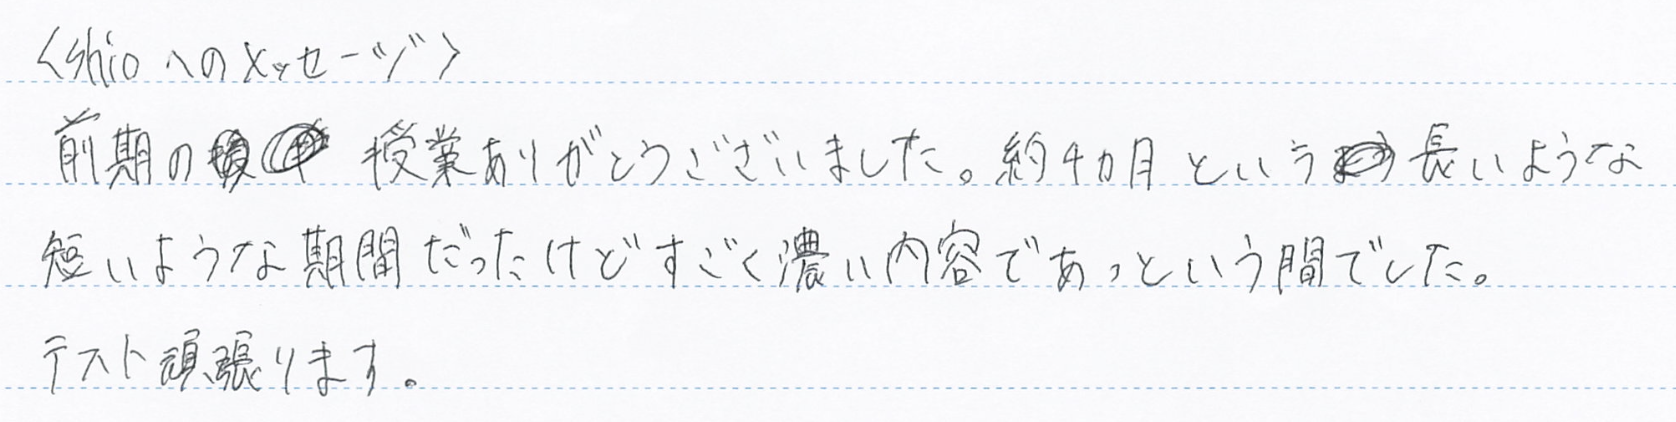 <shioへのメッセージ>
前期の授業ありがとうございました。約4カ月という長いような
短いような期間だったけどすごく濃い内容であっという間でした。
テスト頑張ります。